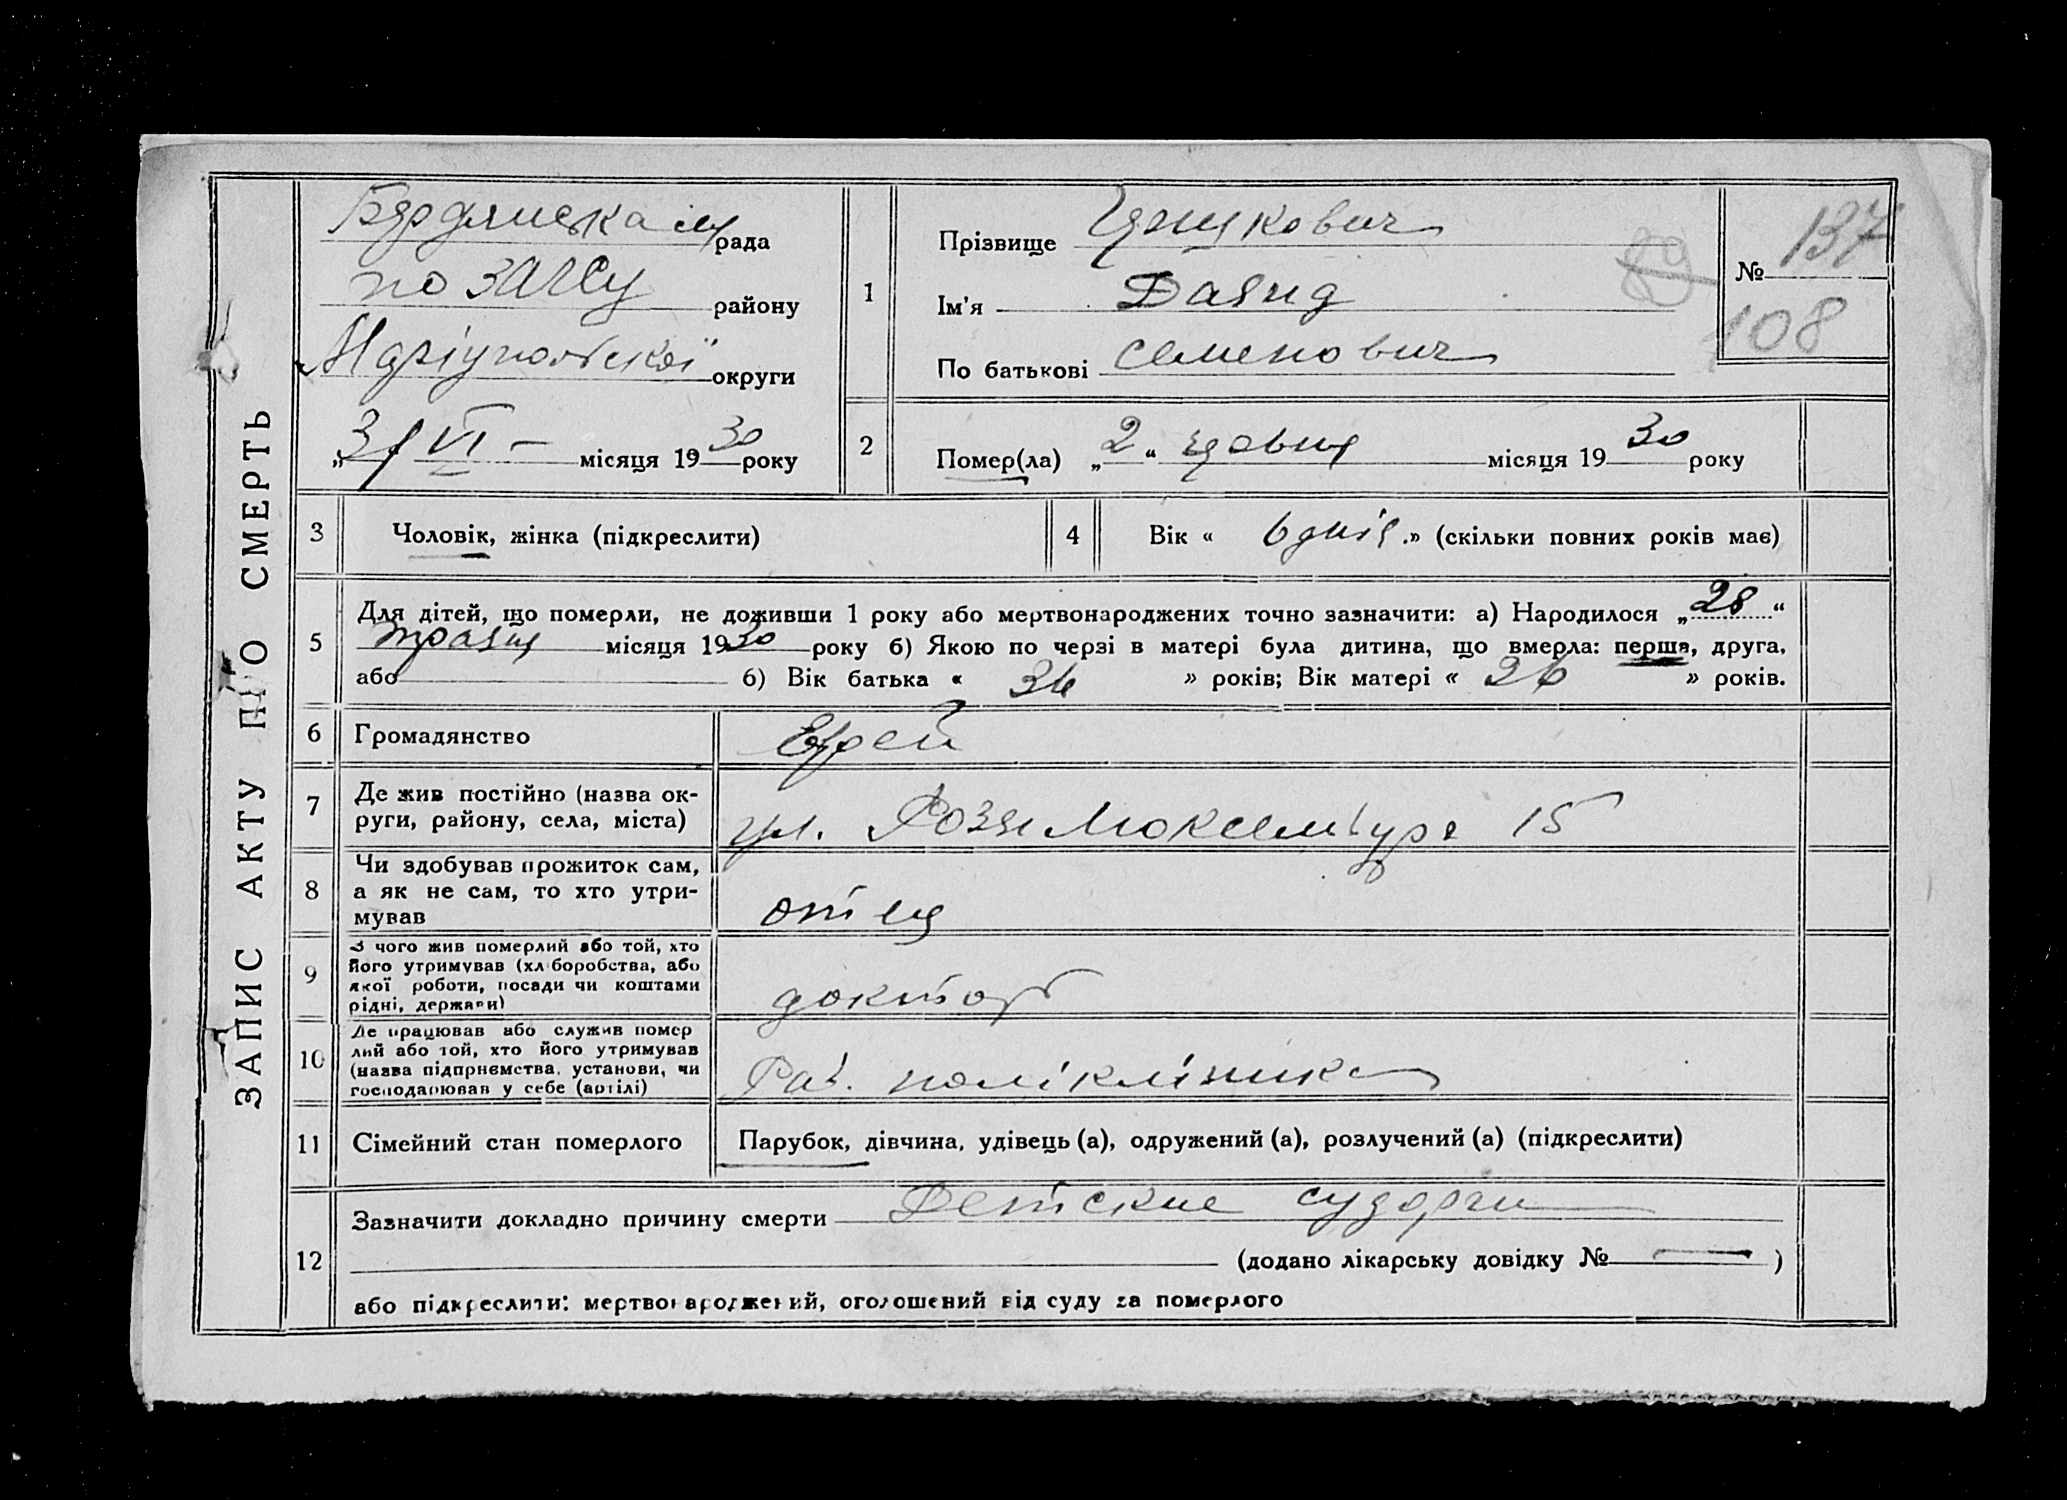 ЗАПИС АКТУ ПРО СМЕРТЬ
Бердянська м рада
по ЗАГСу району
Маріупольської округи
„3/ VI – місяця 1930 року
1
Прізвище
Ім'я Давид
По батькові Семенович
№ 137
89
108
2
Помер(ла) „2“ червня місяця 1930 року
3
Чоловік, жінка (підкреслити)
4
Вік « 6 днів.» (скільки повних років має)
5
Для дітей, що померли, не доживши 1 року або мертвонароджених точно зазначити: а) Народилося „28“
травня місяця 1930 року б) Якою по черзі в матері була дитина, що вмерла: перша, друга,
або б) Вік батька « 36 » років; Вік матері « 26 » років.
6
Громадянство
Еврей
7
Де жив постійно (назва ок-
руги, району, села, міста)
ул. Рози Люксембург 15
8
Чи здобував прожиток сам,
а як не сам, то хто утри-
мував
отец
9
З чого жив померлий або той, хто
його утримував (хліборобства, або
якої роботи, посади чи коштами
рідні, держави)
доктор
10
Де працював або служив помер
лий або той, хто його утримував
(назва підприємства, установи, чи
господарював у себе (артілі)
Раб. поліклініка
11
Сімейний стан померлого
Парубок, дівчина, удівець (а), одружений (а), розлучений (а) (підкреслити)
12
Зазначити докладно причину смерти Детские судорги
(додано лікарську довідку № — )
або підкреслити: мертвонароджений, оголошений від суду за померлого